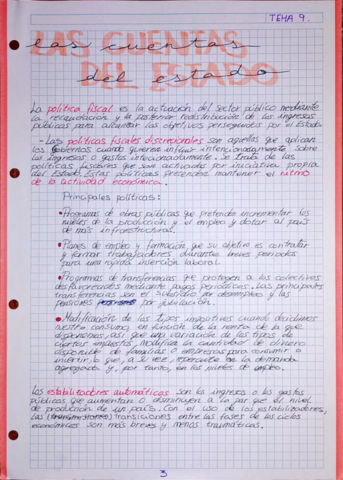 TEMA 9.
LAS CUENTAS
las cuentas
DEL ESTADO
del estado
La política fiscal es la actuación del sector público mediante
la recaudación y la posterior redistribución de los ingresos
públicos para alcanzar los objetivos perseguidos por el Estado.
- Las políticas fiscales discrecionales son aquellas que aplican
los gobiernos cuando quieren influir intencionadamente sobre
los ingresos o gastos intencionadamente. Se trata de las
políticas fiscales que son activadas por iniciativa propia
del Estado. Estas políticas pretenden mantener el ritmo
de la actividad económica.
Principales políticas:
• Programas de obras públicas que pretenden incrementar los
niveles de la producción y el empleo y dotar al país
de más infraestructuras.
• Planes de empleo y formación que su objetivo es contratar
y formar trabajadores durante breves periodos
para una rápida inserción laboral.
• Programas de transferencias que protegen a los colectivos
desfavorecidos mediante pagos periódicos. Las principales
transferencias son el subsidio por desempleo y las
pensiones por jubilación.
• Modificación de los tipos impositivos cuando decidimos
nuestro consumo en función de la renta de la que
disponemos, así que una variación de los tipos de
ciertos impuestos modifica la cantidad de dinero
disponible de familias o empresas para consumir o
invertir, lo que, a su vez, repercute en la demanda
agregada y, por tanto, en los niveles de empleo.
Los estabilizadores automáticos son los ingresos o los gastos
públicos que aumentan o disminuyen a la par que el nivel
de producción de un país. Con el uso de los estabilizadores,
las transiciones entre las fases de los ciclos
económicos son más breves y menos traumáticas.
3